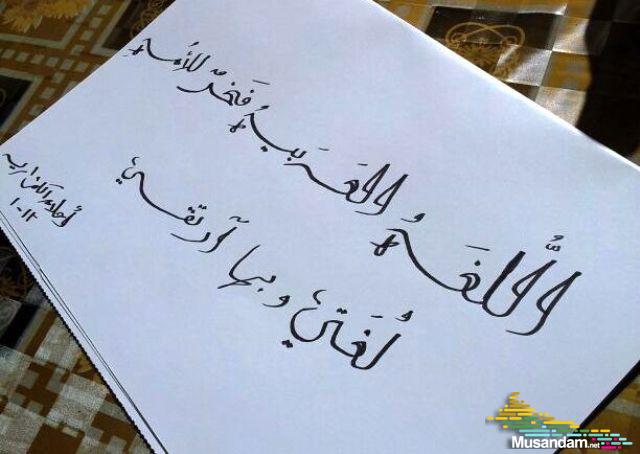 اللُّغَهُ العَربيهُ فَخَرٌ للأمه
لُغَتي وبها آرتقي
أحلام الكمزاريه
Musandam.net